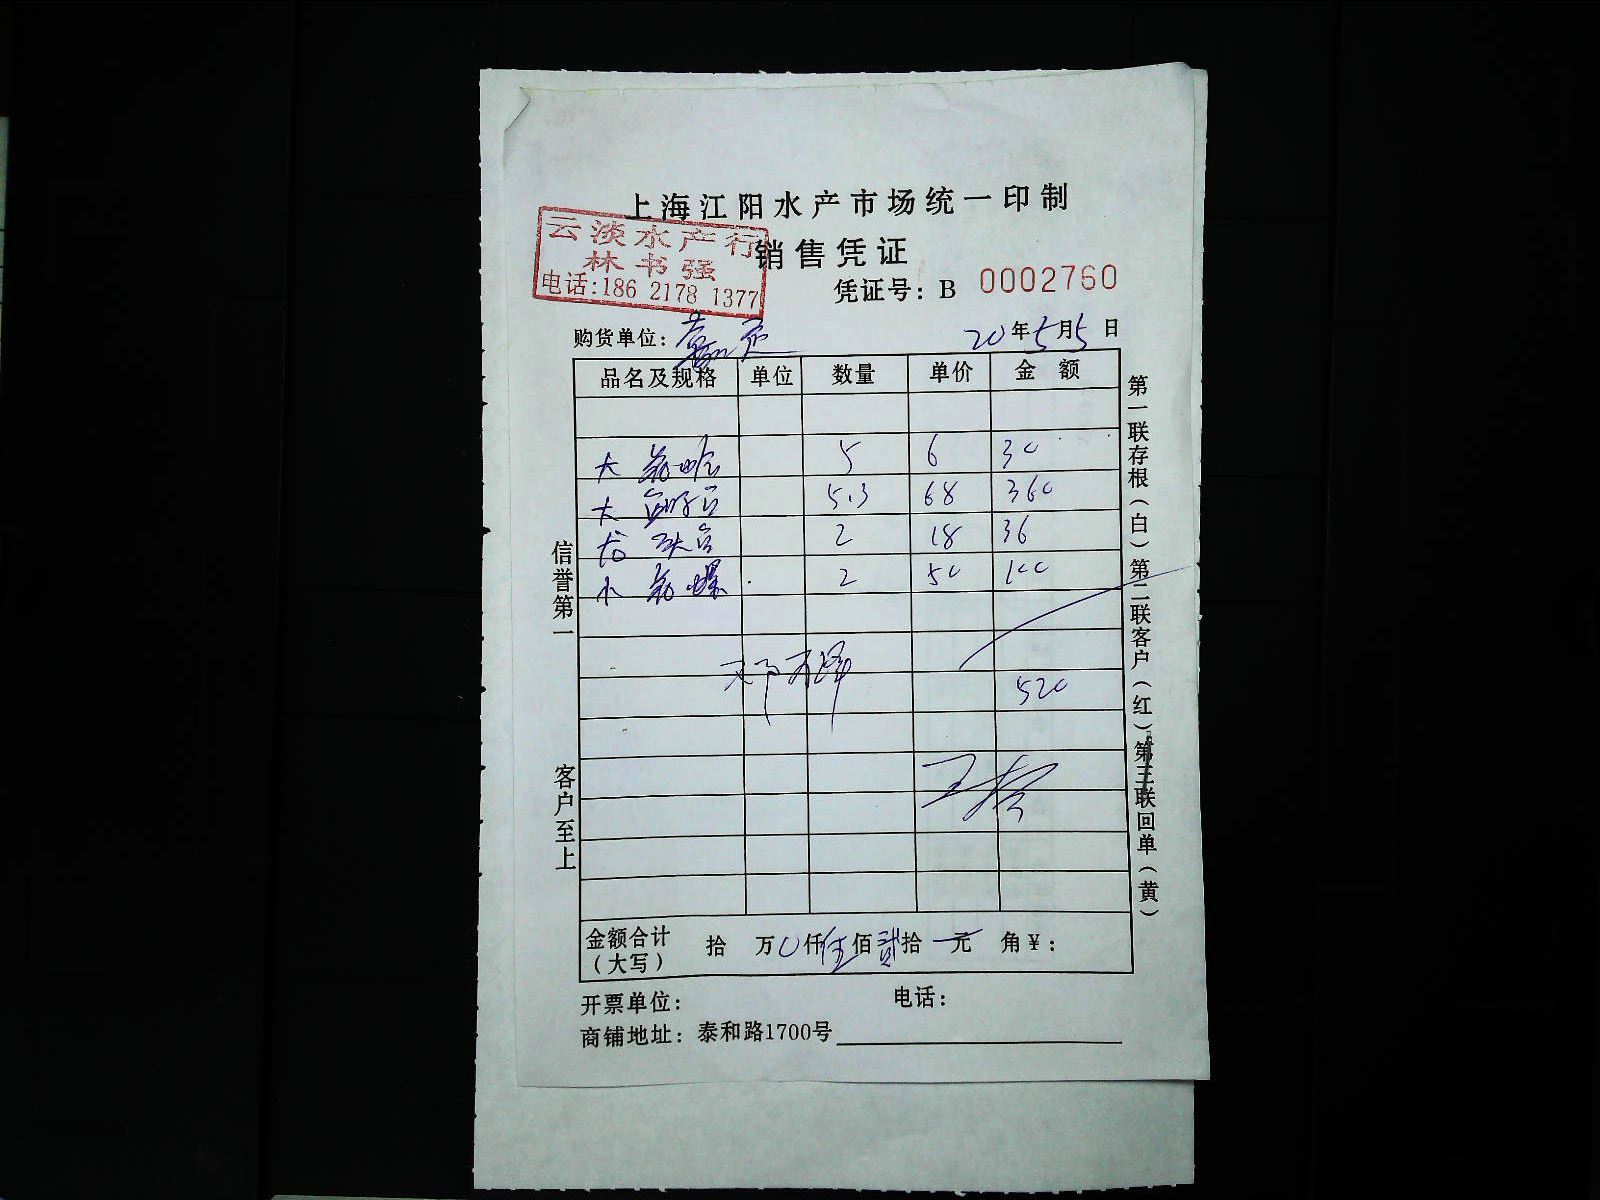 上海江阳水产市场统一印制
云淡水产行
林书强
电话:186 2178 1377
销售凭证
凭证号: B 0002760
购货单位:
20年5月5日
品名及规格 单位 数量 单价 金额
大 5 6 30
大 5.3 68 360
2 18 36
小 螺 2 50 100
520
金额合计(大写) 拾 万0仟伍佰贰拾 元 角¥:
开票单位: 电话:
商铺地址: 泰和路1700号
信誉第一
客户至上
第一联存根(白)第二联客户(红)第三联回单(黄)